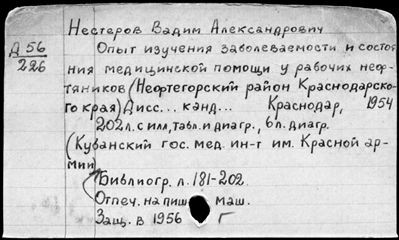 Нестеров Вадим Александрович
Д 56
226
Опыт изучения заболеваемости и состоя-
ния медицинской помощи у рабочих неф-
тяников (Нефтегорский район Краснодарско-
го края) Дисс... канд... Краснодар, 1954
202 л. с илл, табл. и диагр., 6 л. диагр.
(Кубанский гос. мед. ин-т им. Красной ар-
мии)
Библиогр. л. 181-202.
Отпеч. на пиш. маш.
Защ. в 1956 г